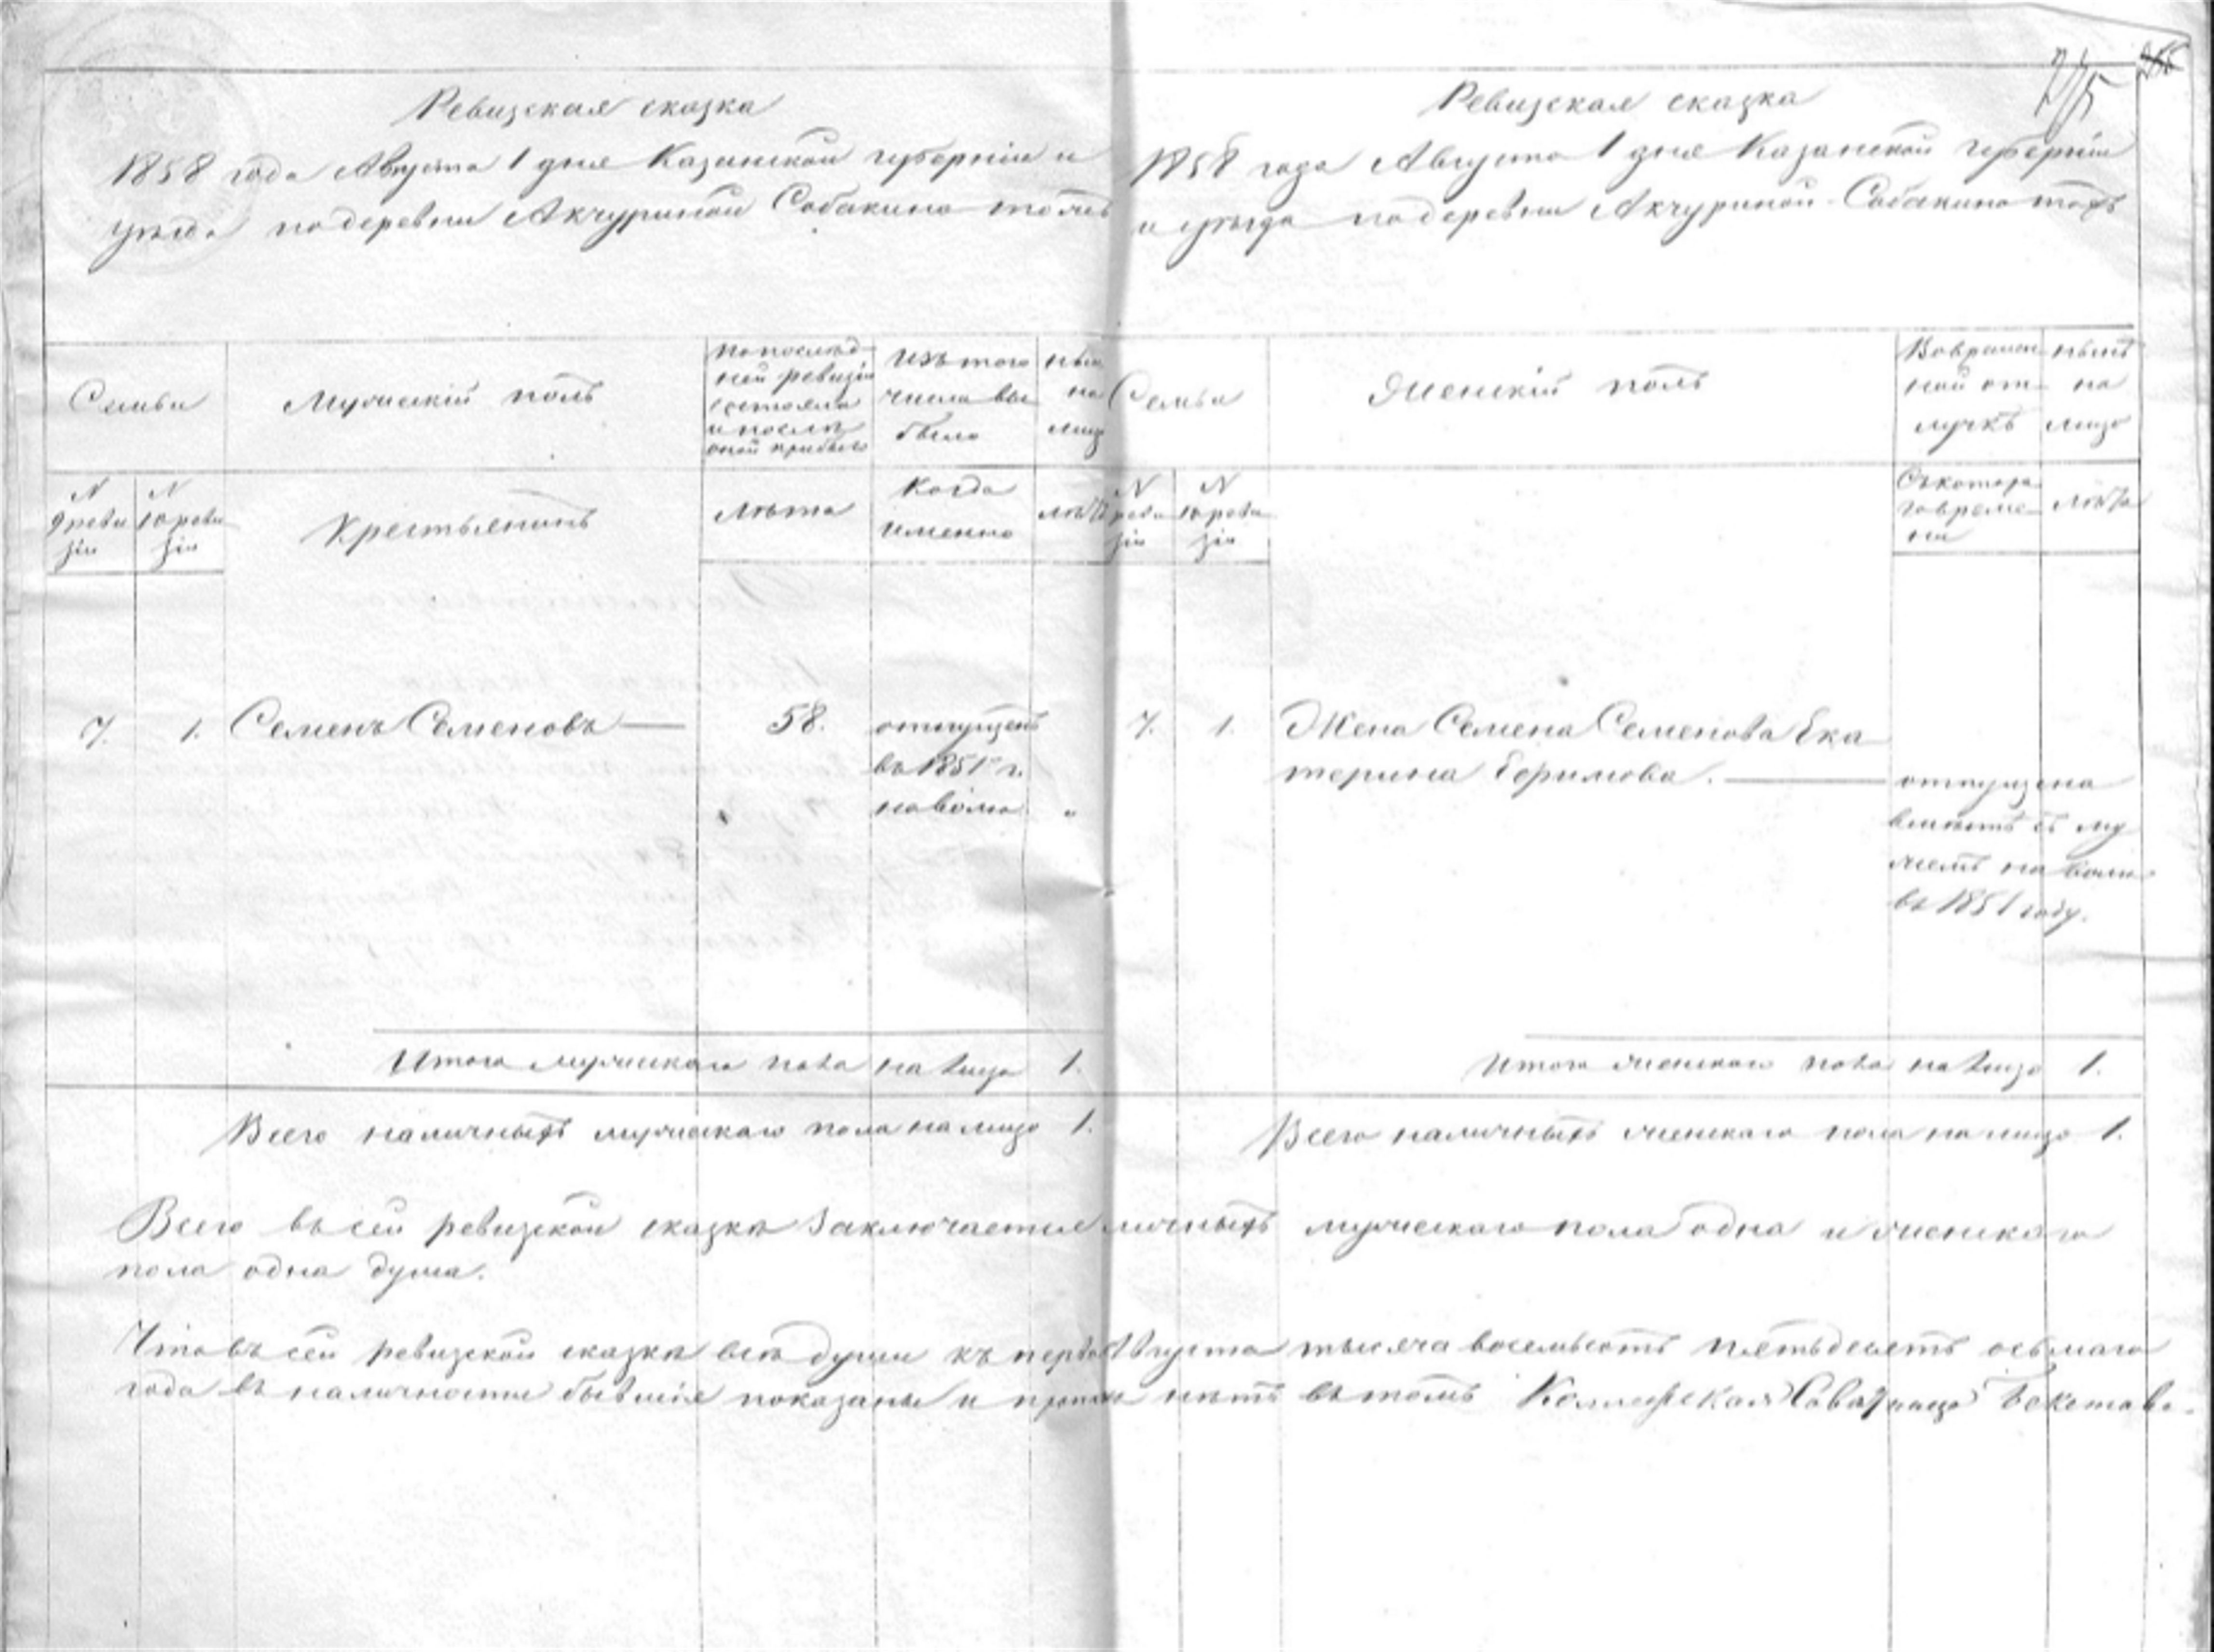 Ревизская сказка
1858 года Августа 1 дня Казанской губернии и
уѣзда по деревни Акчуриной Собакино тожъ
Семьи
Мужескій полъ
по послѣд-
ней ревизіи
состояло
и послѣ
оной прибыло
изъ того
числа вы
было
нынѣ
на
лицо
N
9 реви
зіи
N
10 реви
зіи
Крестьянинъ
Лѣта
Когда
именно
лѣта
7. 1. Семенъ Семеновъ — 58. отпущенъ
въ 1851 г.
на волю. "
Итого мужескаго пола на лицо 1.
Всего наличныхъ мужескаго пола на лицо 1.
Ревизская сказка
1858 года Августа 1 дня Казанской губерніи
и уѣзда по деревни Акчуриной Собакино тожъ
Семьи
Женскій полъ
Во времен-
ной от-
лучкѣ
нынѣ
на
лицо
N
реви
зіи
N
10 реви
зіи
Съ котора-
го време-
ни
лѣта
7. 1. Жена Семена Семенова Ека
терина Ефимова. — отпущена
вмѣстѣ съ му
жемъ на волю
въ 1851 году.
Итого женскаго пола на лицо 1.
Всего наличныхъ женскаго пола на лицо 1.
Всего въ сей ревизской сказкѣ заключается личныхъ мужескаго пола одна и женскаго
пола одна душа.
Что въ сей ревизской сказкѣ всѣ души къ перво Августа тысяча восемьсотъ пятьдесятъ осьмаго
года въ наличности бывшія показаны и нѣтъ въ томъ Коллежская